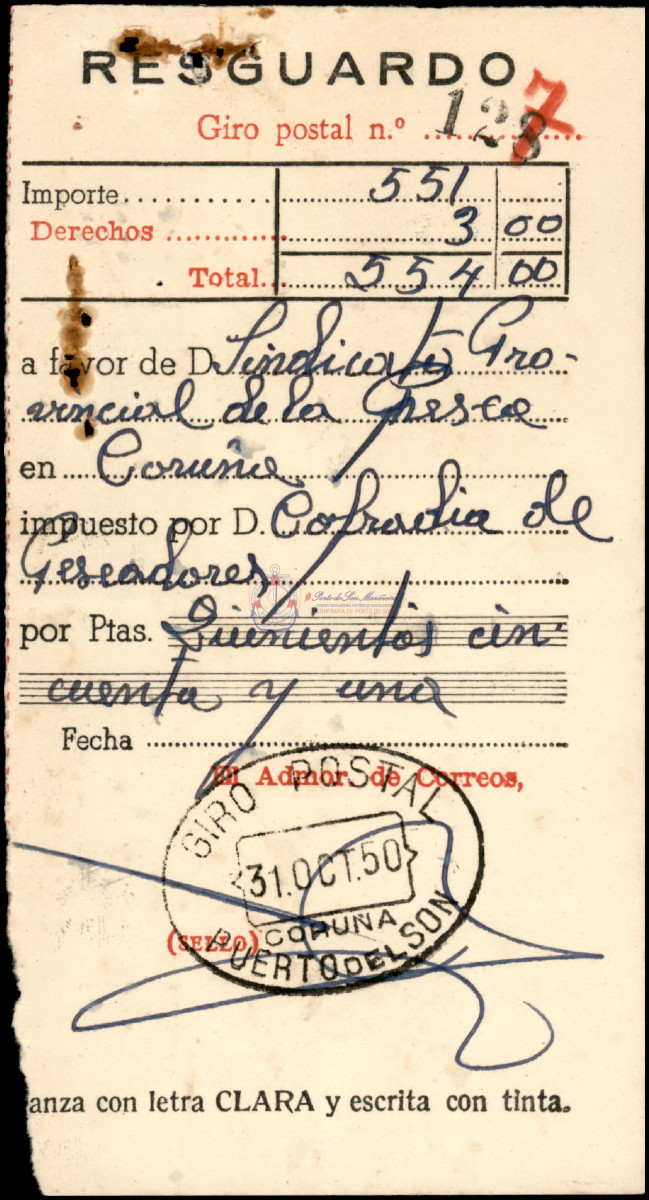 RESGUARDO
Giro postal n.º 128 7
Importe 551
Derechos 3 00
Total 554 00
a favor de D. Sindicato Pro-
vincial de la Pesca
en Coruña
impuesto por D. Cofradia de
Pescadores
Porto do Son Mariñeiro
por Ptas. Quinientos cin
cuenta y una
Fecha
El Admor. de Correos,
GIRO POSTAL
31.OCT.50
CORUÑA
PUERTO DEL SON
(SELLO)
anza con letra CLARA y escrita con tinta.